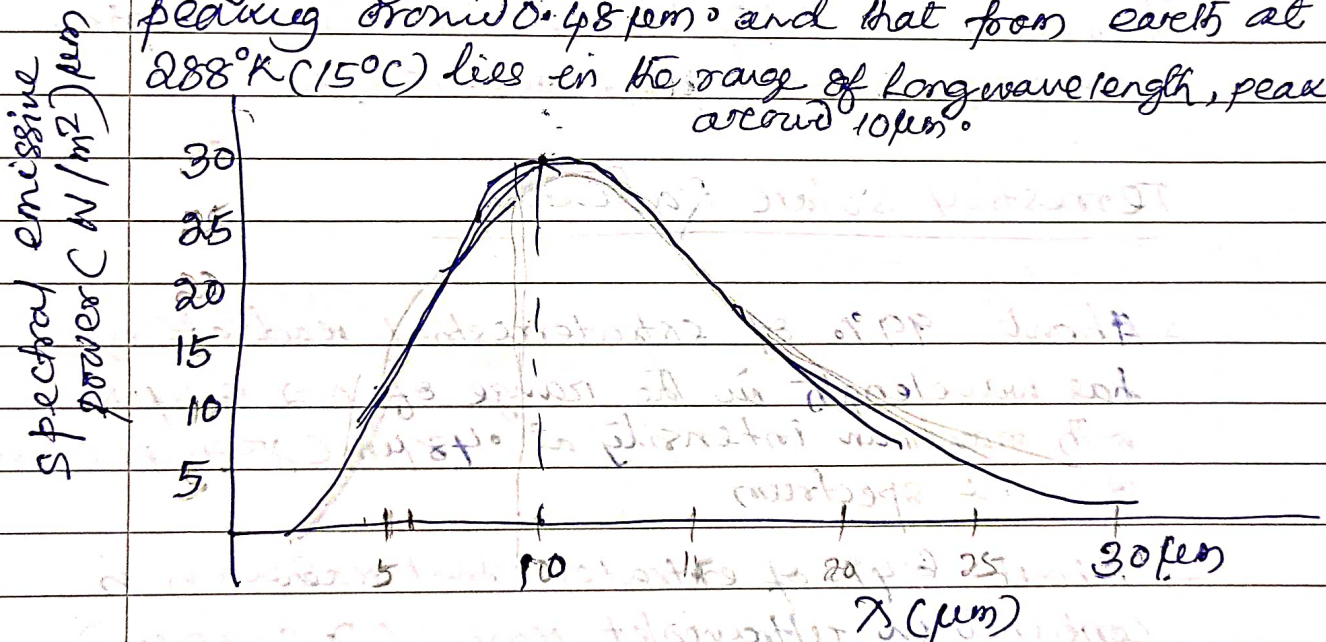 peaking around 0.48 μm. and that from earth at
288°K (15°C) lies in the range of longwavelength, peak
around 10μm.
Spectral emissive
power (W/m2) μm
30
25
20
15
10
5
5 10 15 20 25 30 μm
λ (μm)